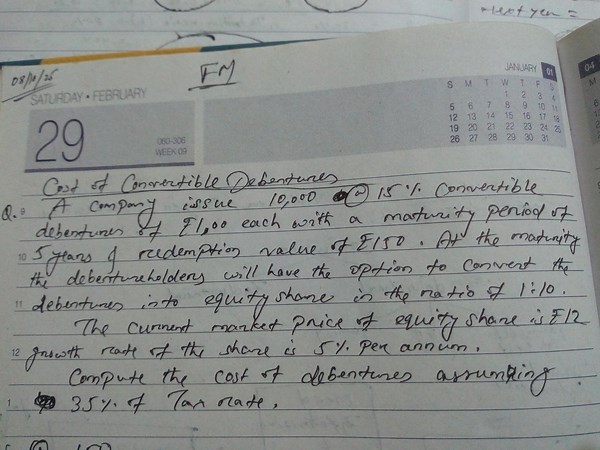 Next year =
08/11/25
FM
JANUARY 01
04
SATURDAY • FEBRUARY
S M T W T F S
1 2 3 4
5 6 7 8 9 10 11
12 13 14 15 16 17 18
19 20 21 22 23 24 25
26 27 28 29 30 31
M
29
060-306
WEEK 09
Cost of Convertible Debentures
Q. 9 A company issue 10,000 @ 15% Convertible
debentures of ₹1,00 each with a maturity period of
10 5 years & redemption value of ₹150. At the maturity
the debentureholders will have the option to convert the
11 debentures into equity share in the ratio of 1:10.
The current market price of equity share is ₹12
12 growth rate of the share is 5% per annum.
Compute the cost of debentures assuming
1 35% of Tax rate.